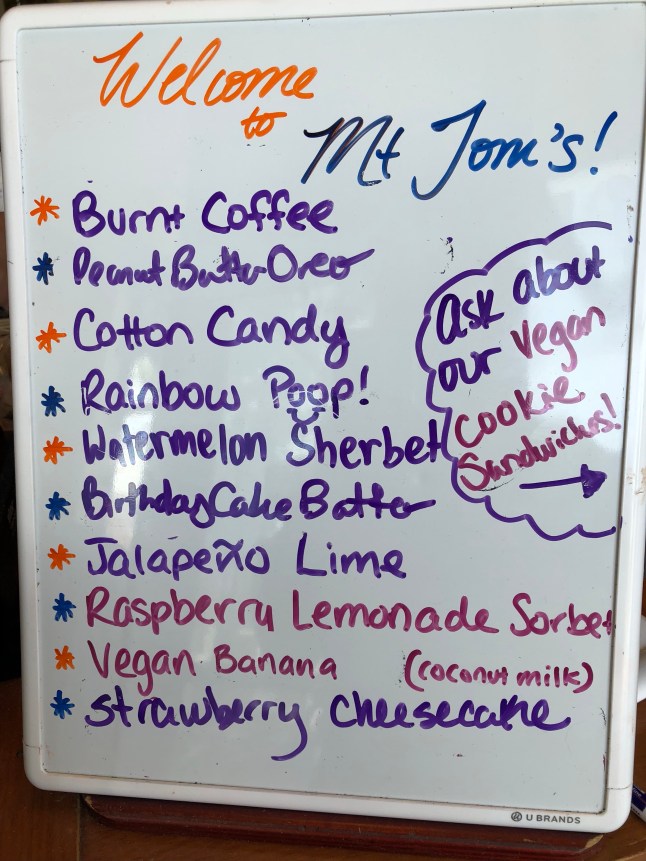 Welcome
to
Mt Tom's!
* Burnt Coffee
* Peanut Butter Oreo
* Cotton Candy
* Rainbow Poop!
* Watermelon Sherbet
* Birthday Cake Batter
* Jalapeño Lime
* Raspberry Lemonade Sorbet
* Vegan Banana (coconut milk)
* Strawberry Cheesecake
Ask about
our Vegan
Cookie
Sandwiches!
U BRANDS